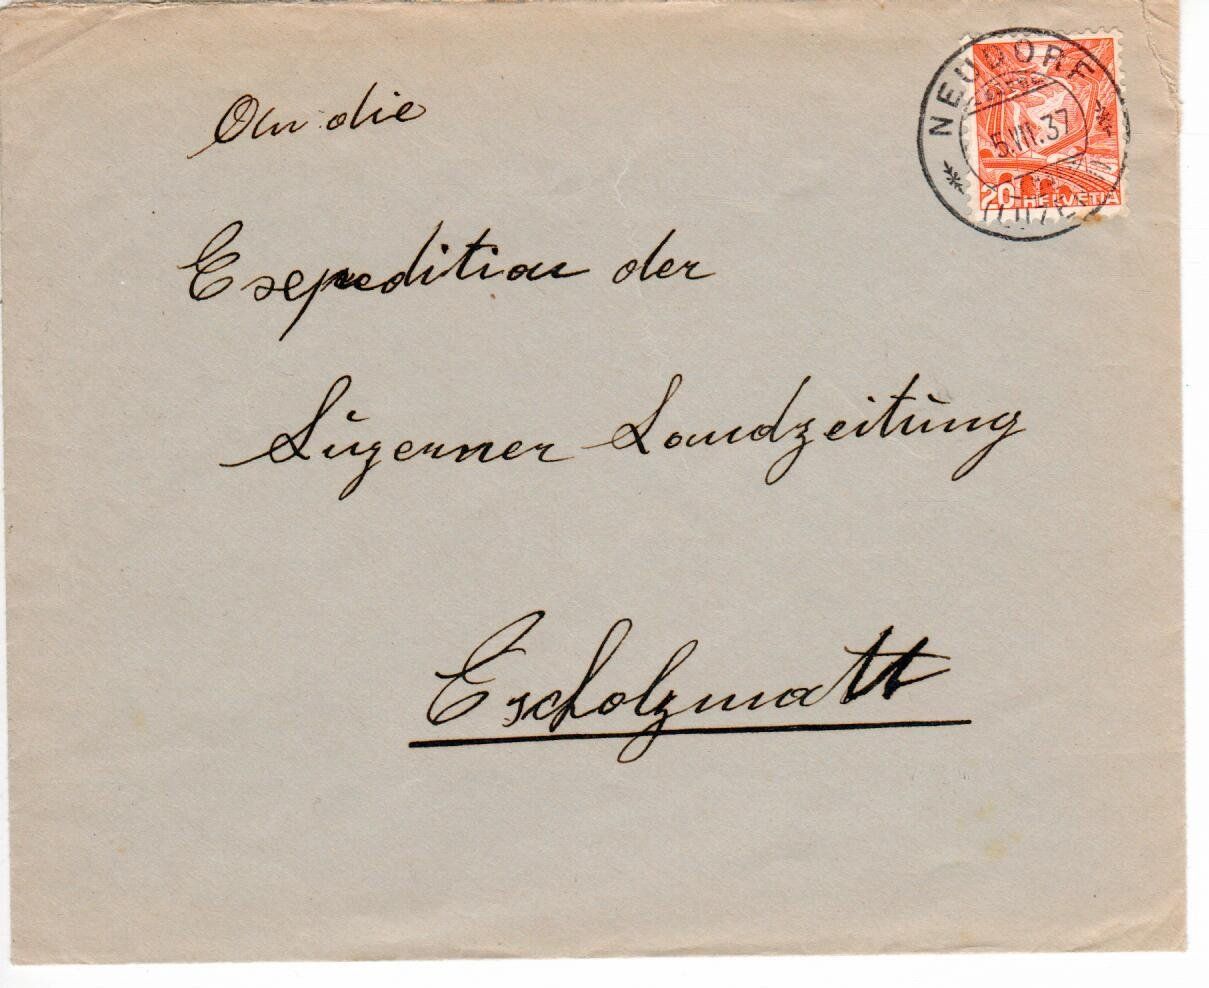 An die
Expedition der
Luzerner Landzeitung
Escholzmatt
NEUDORF
5.VII.37
(LUZERN)
20 HELVETIA